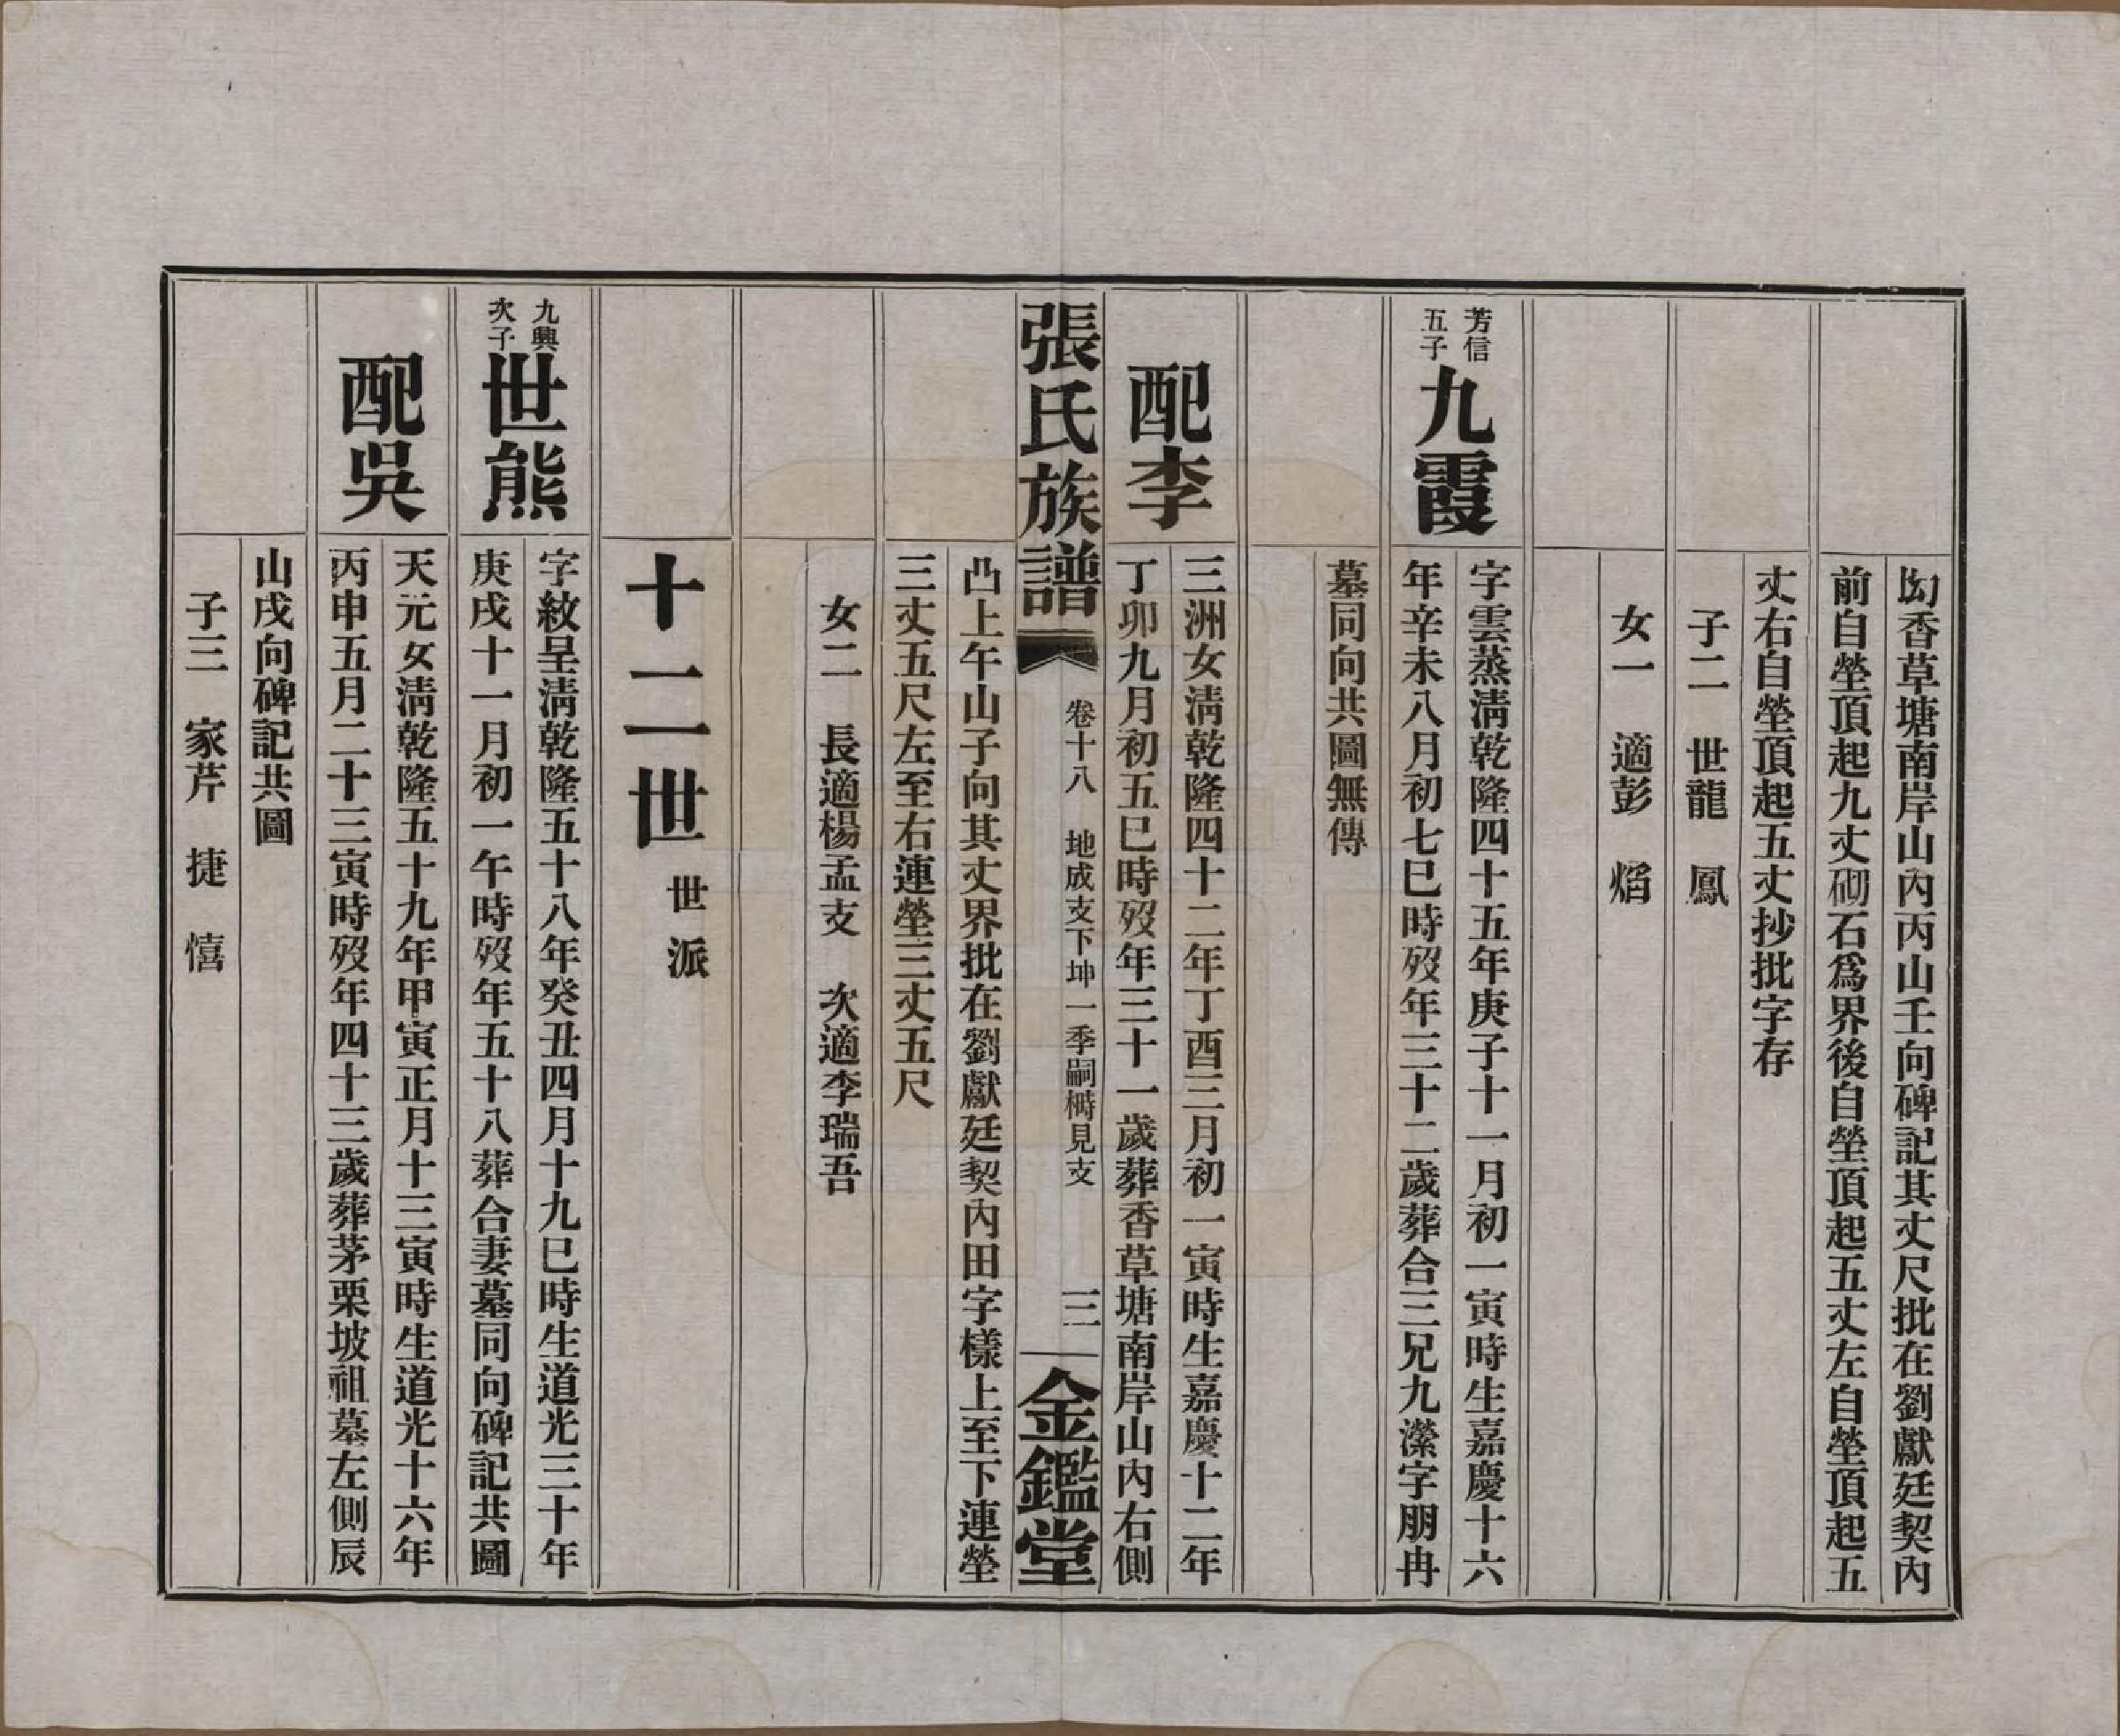 凹香草塘南岸山內丙山壬向碑記其丈尺批在劉獻廷契內
前自塋頂起九丈砌石爲界後自塋頂起五丈左自塋頂起五
丈右自塋頂起五丈抄批字存
子二　世龍　鳳
女一　適彭　熖
芳信
五子
九霞
字雲蒸淸乾隆四十五年庚子十一月初一寅時生嘉慶十六
年辛未八月初七巳時歿年三十二歲葬合三兄九濚字朋冉
墓同向共圖無傳
配李
三洲女淸乾隆四十二年丁酉三月初一寅時生嘉慶十二年
丁卯九月初五巳時歿年三十一歲葬香草塘南岸山內右側
張氏族譜　卷十八　地成支下坤一季嗣橓見支　三　金鑑堂
凸上午山子向其丈界批在劉獻廷契內田字樣上至下連塋
三丈五尺左至右連塋三丈五尺
女二　長適楊孟支　次適李瑞吾
十二世　世派
九興
次子
世熊
字紋呈淸乾隆五十八年癸丑四月十九巳時生道光三十年
庚戌十一月初一午時歿年五十八葬合妻墓同向碑記共圖
配吳
天元女淸乾隆五十九年甲寅正月十三寅時生道光十六年
丙申五月二十三寅時歿年四十三歲葬茅栗坡祖墓左側辰
山戌向碑記共圖
子三　家芹　捷　憘